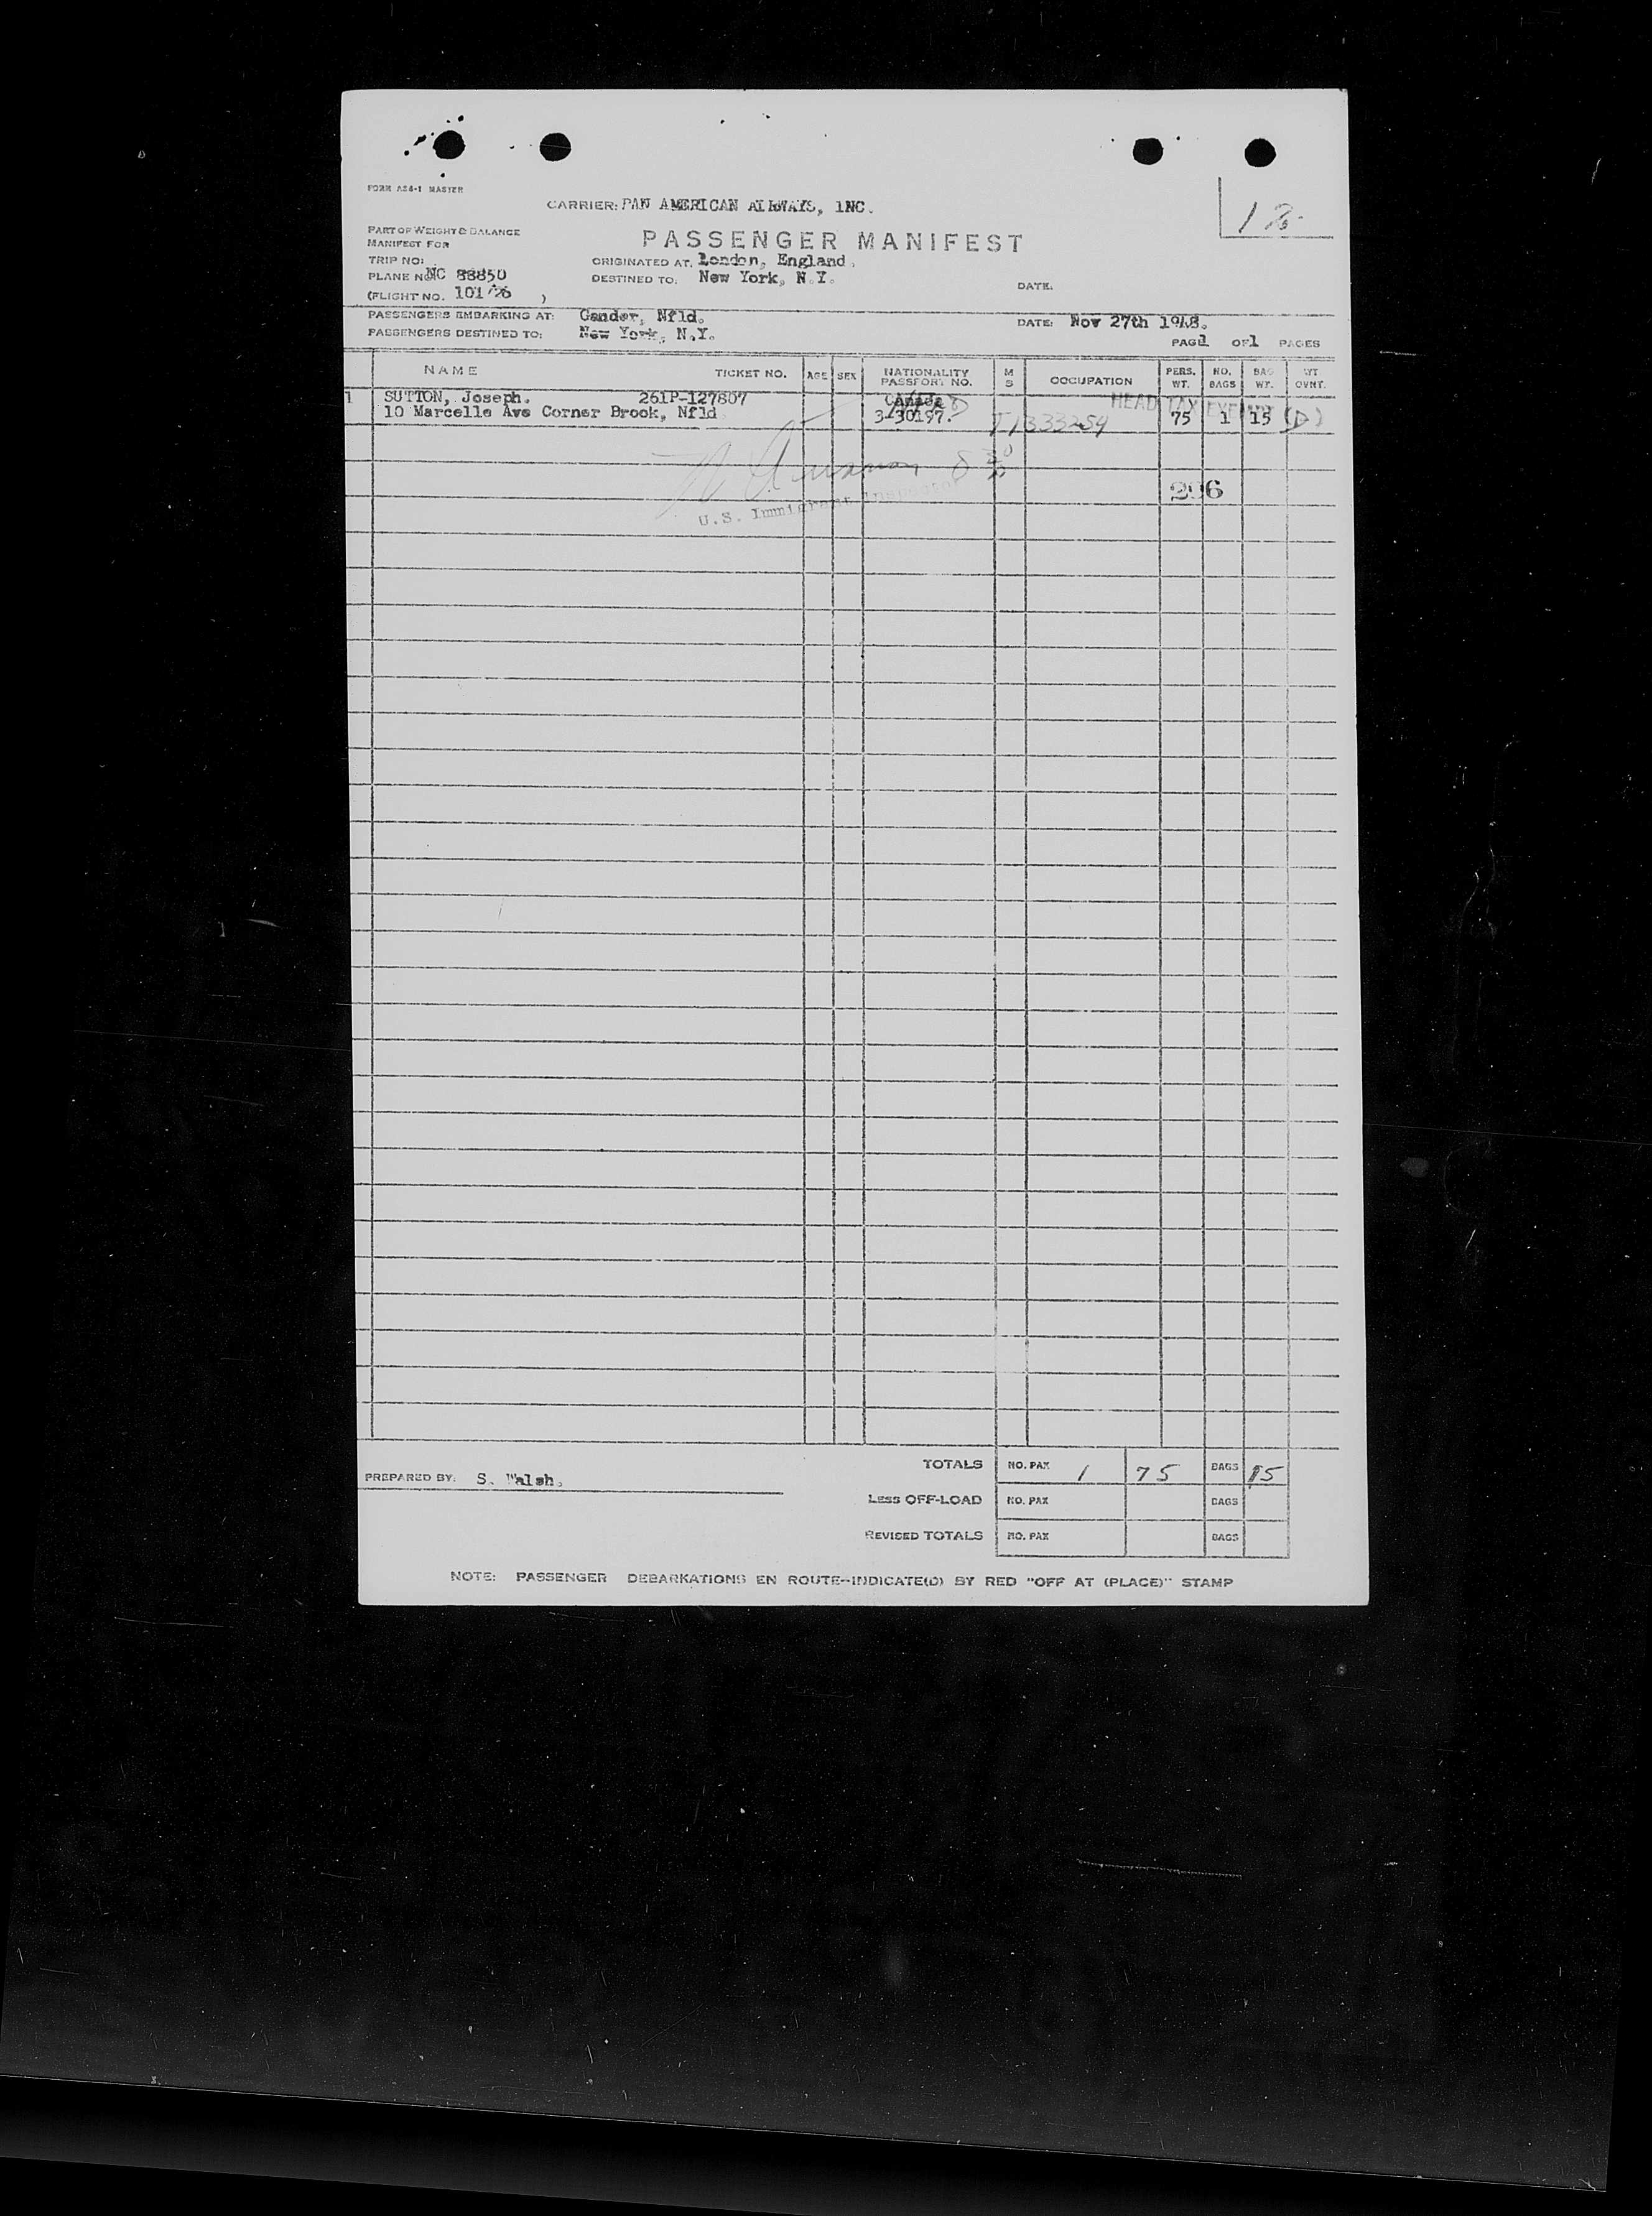 FORM AS4-1 MASTER
CARRIER: PAN AMERICAN AIRWAYS, INC.
PART OF WEIGHT & BALANCE
MANIFEST FOR
PASSENGER MANIFEST
TRIP NO:
ORIGINATED AT. London, England.
PLANE NO. NC 88850
DESTINED TO: New York, N.Y.
DATE.
(FLIGHT NO. 101/26 )
PASSENGERS EMBARKING AT: Gander, Nfld.
DATE: Nov 27th 1948.
PASSENGERS DESTINED TO: New York, N.Y.
PAGE 1 OF 1 PAGES
NAME TICKET NO. AGE SEX NATIONALITY PASSPORT NO. M S OCCUPATION PERS. WT. NO. BAGS BAG WT. WT OVNT.
1 SUTTON, Joseph. 261P-127807 Canada
HEAD TAX
10 Marcelle Ave Corner Brook, Nfld 3-30197. T1333259 75 1 15 (D)
206
U.S. Immigrant Inspector
TOTALS NO. PAX 1 75 BAGS 15
PREPARED BY: S. Walsh.
LESS OFF-LOAD NO. PAX BAGS
REVISED TOTALS NO. PAX BAGS
NOTE: PASSENGER DEBARKATIONS EN ROUTE-INDICATE(D) BY RED "OFF AT (PLACE)" STAMP